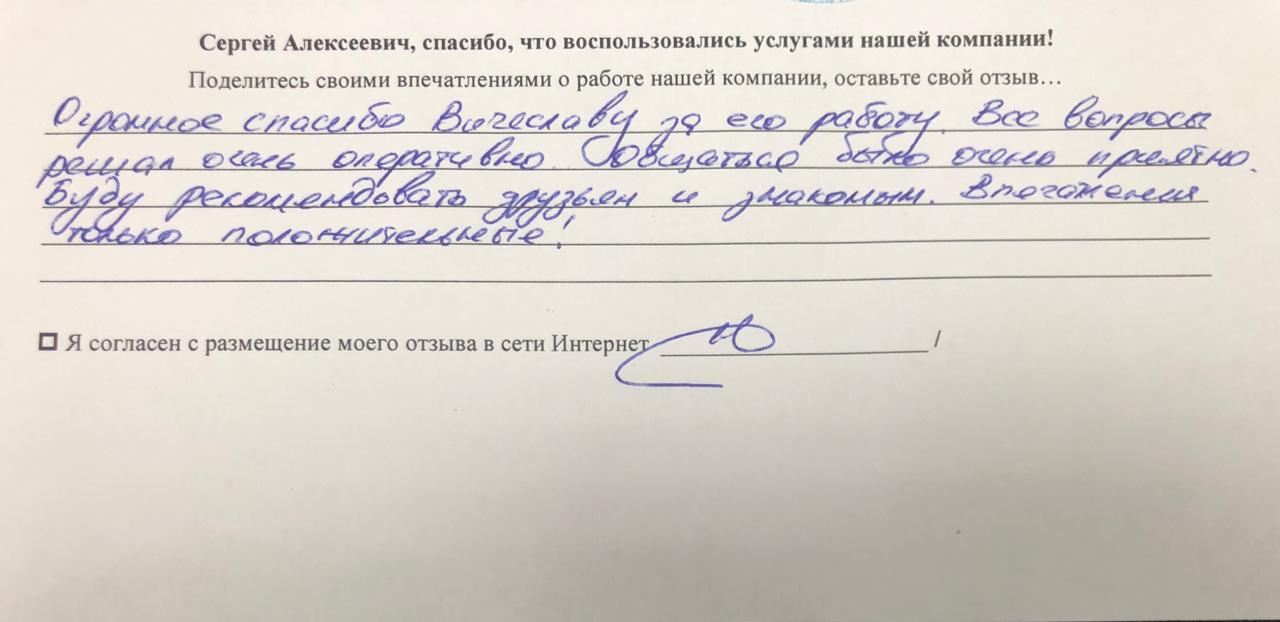 Сергей Алексеевич, спасибо, что воспользовались услугами нашей компании!
Поделитесь своими впечатлениями о работе нашей компании, оставьте свой отзыв…
Огромное спасибо Вичеславу за его работу. Все вопросы
решал очень оперативно. Общаться было очень приятно.
Буду рекомендовать друзьям и знакомым. Впечатления
только положительные!
Я согласен с размещение моего отзыва в сети Интернет /